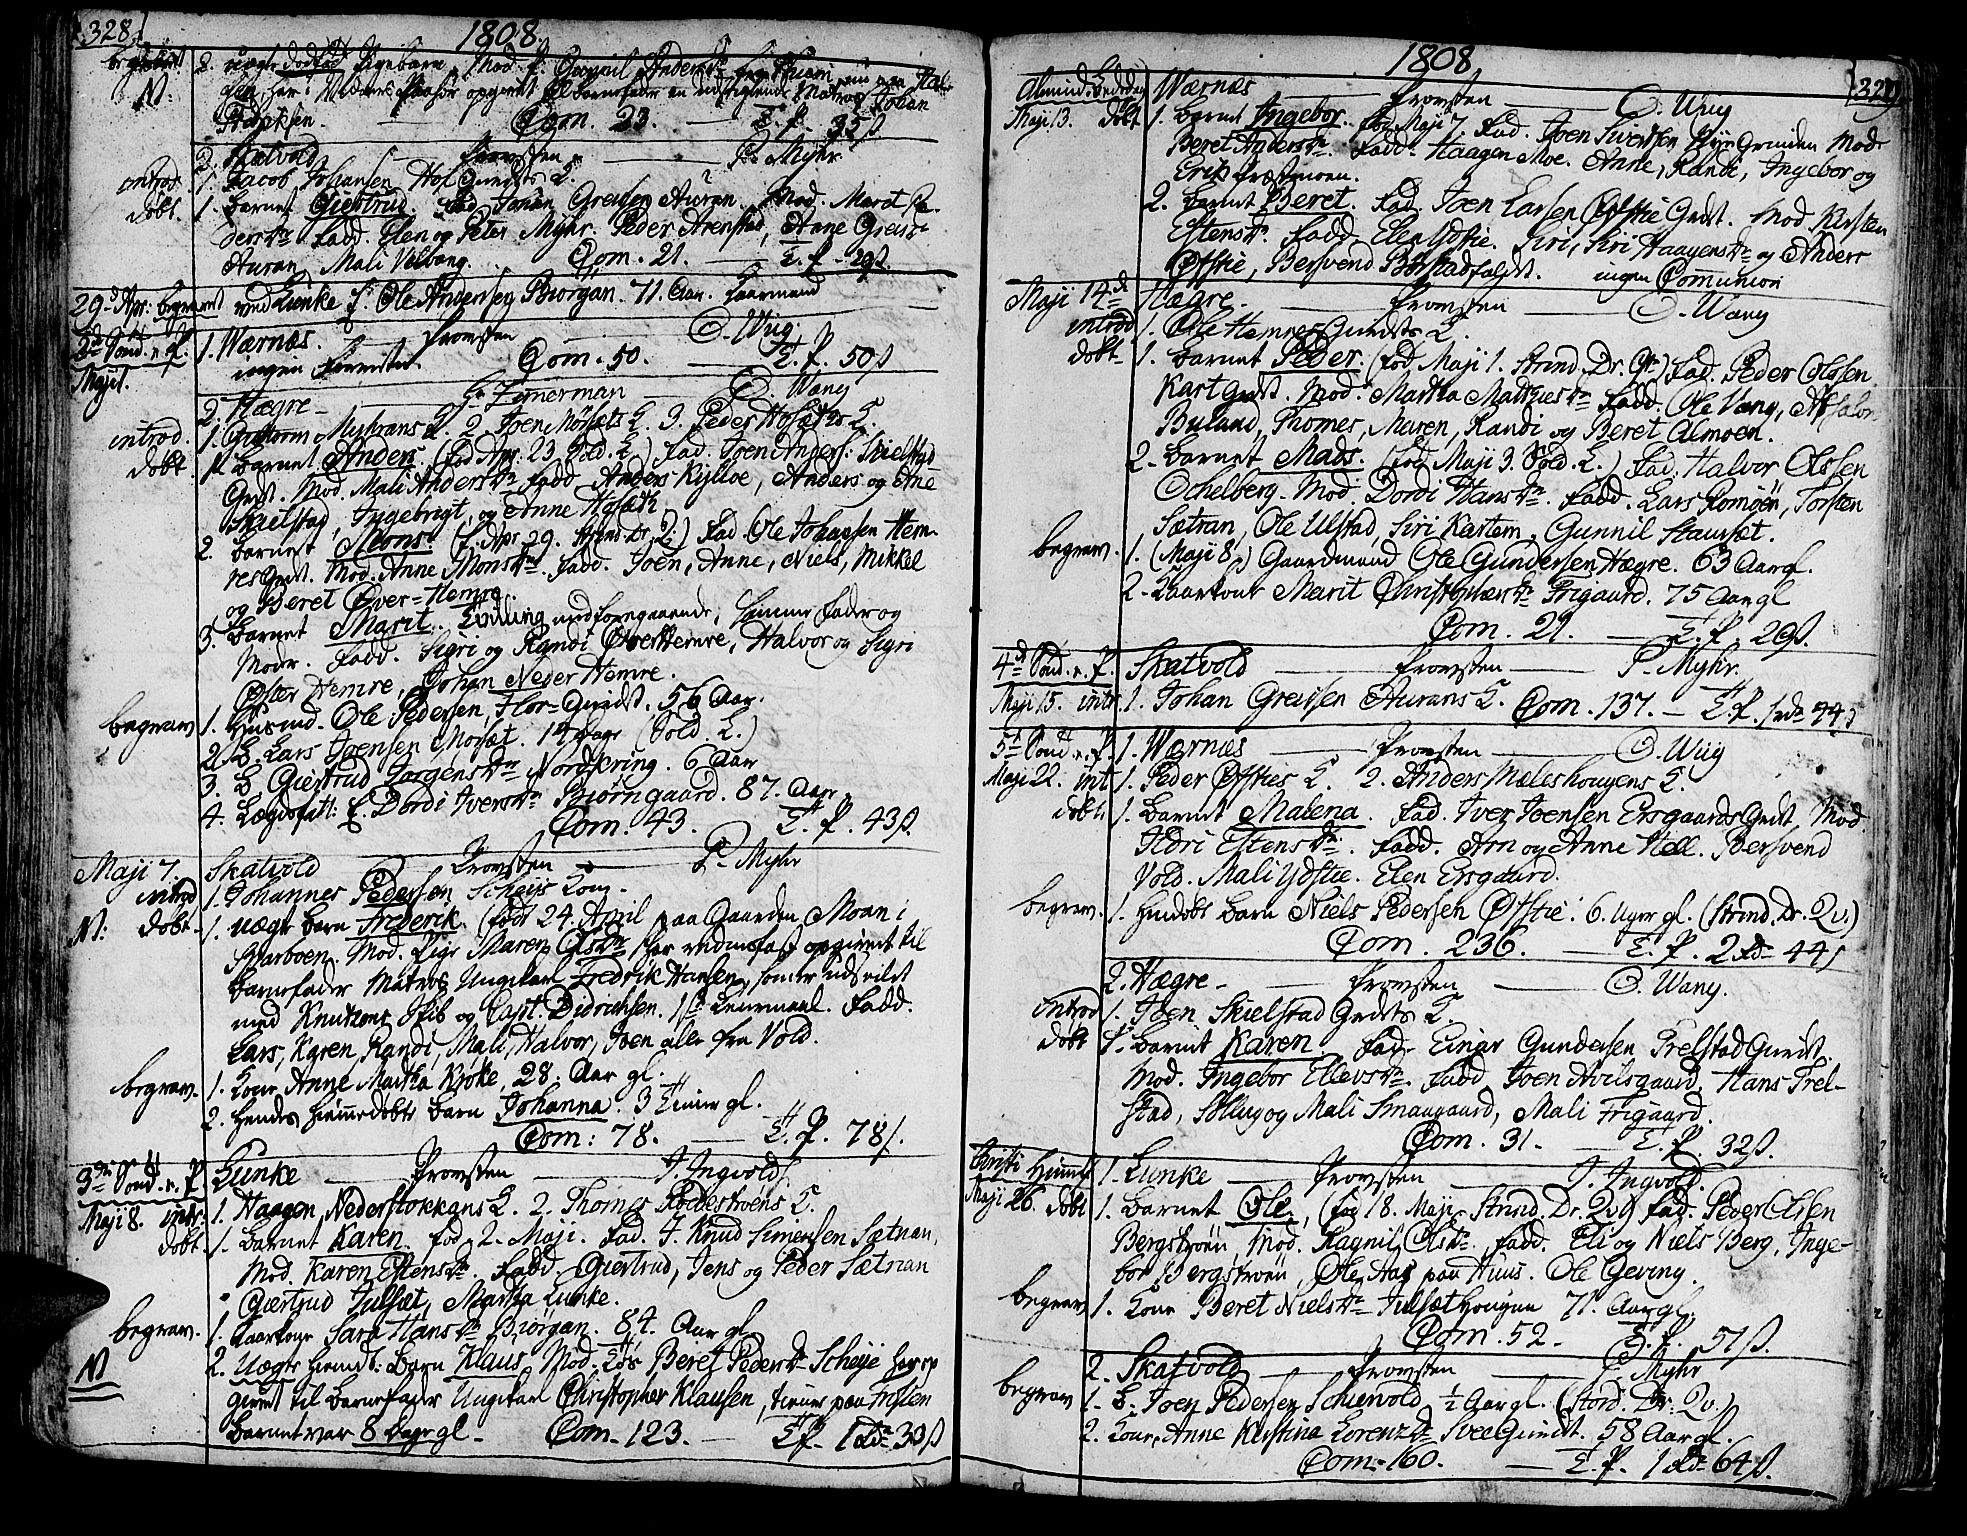 328.
1808.
begravet 2. uægte dødfød Pigebarn. Mod. P. Gunnil Andersdr
N
Fredriksen. Com. 23. E. P. 35 ß
2. Skatvold Provsten P. Myhr.
introd. 1. Jacob Johansen Hof Gmdsts K.
døbt. 1. Barnet Giertrud. Fad. Johan Greisen Auran. Mod. Marit Pe-
dersdr Fadd. Elen og Peter Myhr. Peder Arenstad, Anne Greisdr
Auran, Mali Velvang. Com. 21. E. P. 29 ß
29de Apr. begravet ved Lunke f. Ole Andersen Biørgan. 71. Aar. Kaarmand
2d Sønd. e. P. 1. Wærnæs. Provsten O. Wiig.
Maji 1. ingen Forretn. Com. 50. E. P. 50 ß
2. Hægre Hr Zimerman O. Wang
introd. 1. Guttorm Mystrans K. 2. Joen Møsæts K. 3. Peder Hofæths K.
døbt. 1. Barnet Anders (fød Apr: 23 Sold. K.) Fad. Joen Anders: Skielstad
Gmdst. Mod. Mali Andersdr Fadd. Anders Kylloe, Anders og Ane
Skielstad, Ingebrigt, og Anne Hofæth
2. Barnet Mons (f. Apr. 29. Strind Dr. Q.) Fad. Ole Johansen Hem-
res Gmdst. Mod. Anne Monsdr. Fadd. Joen, Anne, Niels, Mikkel
og Beret Øver-Hemre.
3. Barnet Marit. Tvilling med foregaaende, samme Fader og
Moder. Fadd. Sigri og Randi Øver Hemre, Halvor og Sigri
Øster Hemre, Johan Neder Hemre.
begrav 1. Huusmd. Ole Pedersen, Flor-Gmdst. 56 Aar.
2. B. Lars Joensen Møsæt. 14 Dage (Sold. K.)
3. B Giertrud Jørgensdr Nordkring. 6 Aar
4. Lægdsfatt: E. Dordi Iversdr Biørngaard. 87. Aar
Com. 43. E. P. 43 ß.
Maji 7. Skatvold Provsten P. Myhr
introd 1. Johannes Pedersen Scheijs Kone.
N: døbt. 1. uægte Barn Frederik (født 24. April paa Gaarden Moan i
Sparboen. Mod. Pige Maren Olsdr har vedmofast opgivet til
Barnefader Matros Ungkarl Fredrik Hansen, som er udreist
med Knutzons Skib og Capt. Didrichsen. 1ste Leiermaal. Fadd.
Lars, Karen, Randi, Mali, Halvor, Joen alle fra Vold.
begrav. 1. Kone Anne Martha Krøke, 28. Aar gl.
2. Hendes hiemmedøbte Barn Johanna. 3 Timer gl.
Com: 78. E. P. 78 ß.
3de Sønd. e. P Lunke Provsten J. Ingvolds
Maji 8. intr. 1. Haagen Nederstokkans K. 2. Thomes Røddestrøens K.
døbt. 1. Barnet Karen fød. 2. Maji. Fad. f. Knud Simensen Sætnan,
Mod. Karen Estensdr. Fadd. Giertrud, Jens og Peder Sætnan
Giertrud Julsæt, Martha Lunke.
begrav. 1. Kaarkone Sara Hansdr Biørgan. 84. Aar gl
N 2. Uægte hiemdt. Barn Klaus, Mod. Løs Beret Pedersdr Scheije har op
givet til Barnefader Ungkarl Christopher Klausen, tiener paa Frosten
Barnet var 8 Dage gl. Com. 123. E. P. 1 Rdr 30 ß
1808.
329
Almind. Bededag Wærnæs Provsten O. Wiig
Maji 13. døbt 1. Barnet Ingebor. fød Maji 7. Fad. Joen Iversen Mÿr Grinden Mod.
Beret Andersdr. Fadd. Haagen Moe. Anne, Randi, Ingebor og
Erik Præstmoen.
2. Barnet Beret. Fad. Joen Larsen Øfstie Gmdst. Mod Kirsten
Estensdr. Fadd. Elen Ydstie. Siri, Siri Haagensdr og Anders
Øfstie, Bersvend Børstadfaldet. ingen Communion
Maji 14de Hægre. Provsten O. Wang
introd 1. Ole Hemres Gmdsts K.
døbt. 1. Barnet Peder (fød Maji 1. Strind. Dr. Q.) Fad. Peder Olssen
Kart Gmdst. Mod. Martha Mathiesdr Fadd. Ole Vang, Absalon
Buland, Thomes, Maren, Randi og Beret Almoen.
2. Barnet Mads. (fød Maji 3. Sold. K.) Fad. Halvor Olssen
Ochelberg. Mod. Dordi Hansdr. Fadd. Lars Romøen, Torsten
Sætran, Ole Ulstad, Siri Kartem, Gunnil Stausæt.
begrav. 1. (Maji 8.) Gaardmand Ole Gundersen Hægre. 63 Aar gl.
2. Kaarkone Marit Christophersdr Frigaard. 75 Aar gl
Com. 29. E. P. 29 ß.
4de Sønd. e. P. Skatvold Provsten P. Myhr.
Maji 15. intr. 1. Johan Greisen Aurans K. Com. 137. E. P. 1 Rdr 44 ß
5te Sønd. e. P. 1. Wærnæs Provsten O. Wiig
Maji 22. int 1. Peder Øfsties K. 2. Anders Mæleshougens K.
døbt. 1. Barnet Malena. Fad. Iver Joensen Ersgaards Gmdst. Mod.
Ildri Estensdr. Fadd. Arn og Anne Hell. Bersvend
Vold. Mali Ydstie. Elen Ersgaard.
begrav. 1. Hiemdøbt Barn Niels Pedersen Øfstie. 6. Uger gl. (Strind. Dr. Qv.)
Com. 236. E. P. 2 Rdr 44 ß
2. Hægre Provsten O. Wang.
introd 1. Joen Skielstad Gmdsts K.
døbt 1. Barnet Karen Fad. Einar Gundersen Trelstad Gmdst.
Mod. Ingebor Ellevsdr. Fadd Joen Avelsgaard, Hans Trel-
stad, Sollug og Mali Smaagaard, Mali Frigaard.
Com. 31. E. P. 32 ß.
Christi Himmelf 1. Lunke Provsten J. Ingvold.
Maji 26. døbt 1. Barnet Ole, (fød 18. Maji. Strind. Dr. Qv) Fad. Peder Olsen
Bergstrøen, Mod. Ragnil Olsdr. Fadd. Eli og Niels Berg, Inge-
bor Bergstrøen, Ole Aas paa Huus. Ole Geving.
begrav 1. Kone Beret Nielsdr Julsæt Hougen 71. Aar gl.
Com. 52. E. P. 51 ß.
2. Skatvold Provsten P. Myhr
begrav 1. B. Joen Pedersen Schiervold ½ Aar gl. (Stiørd. Dr. Qv.)
2. Kone, Anne Kirstina Lorenzdr Svee Gmdst. 58 Aar gl.
Com. 160. E. P. 1 Rdr 64 ß.